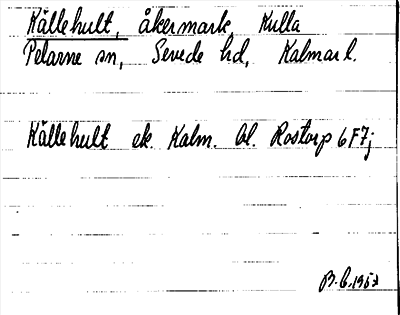 Källehult, åkermark, Kulla
Pelarne sn, Sevede hd, Kalmar l.
Källehult ek. Kalm. bl. Rostorp 6F7j
B.L. 1957